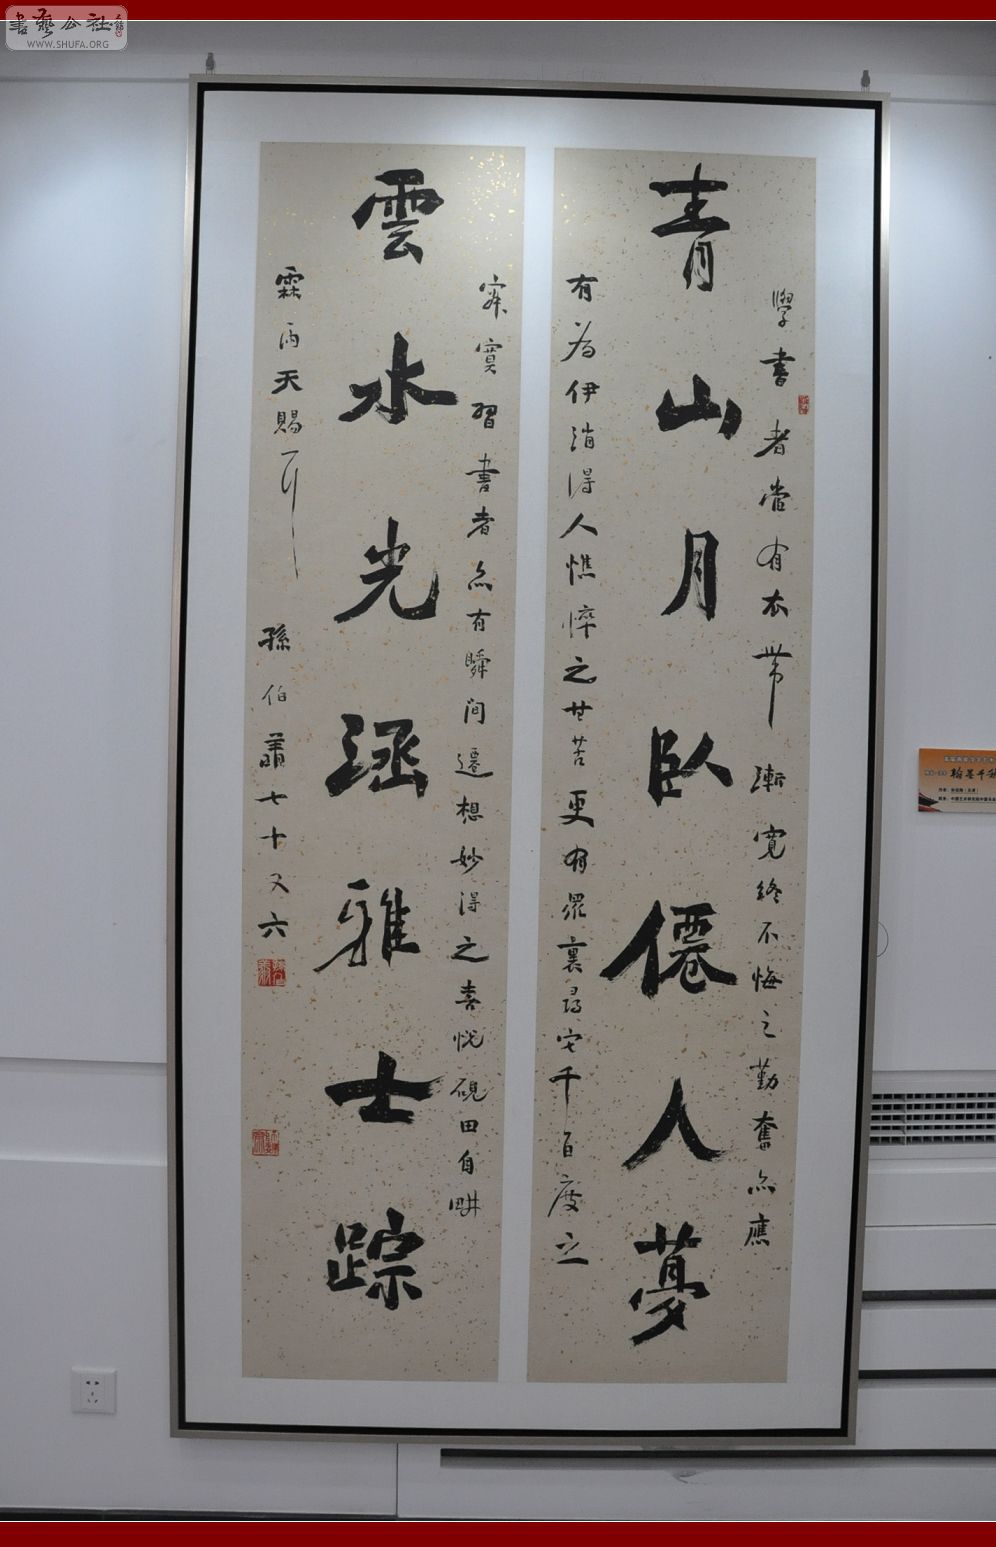 書藝公社
WWW.SHUFA.ORG
學書者當有衣帶漸寬終不悔之勤奮亦應
青山月臥僊人夢
有為伊消得人憔悴之甘苦更有眾裏尋它千百度之
寂寞習書者亦有瞬间遷想妙得之喜悦硯田自畊
雲水光涵雅士踪
霖雨天賜耳
孫伯翦七十又六
翰墨千秋